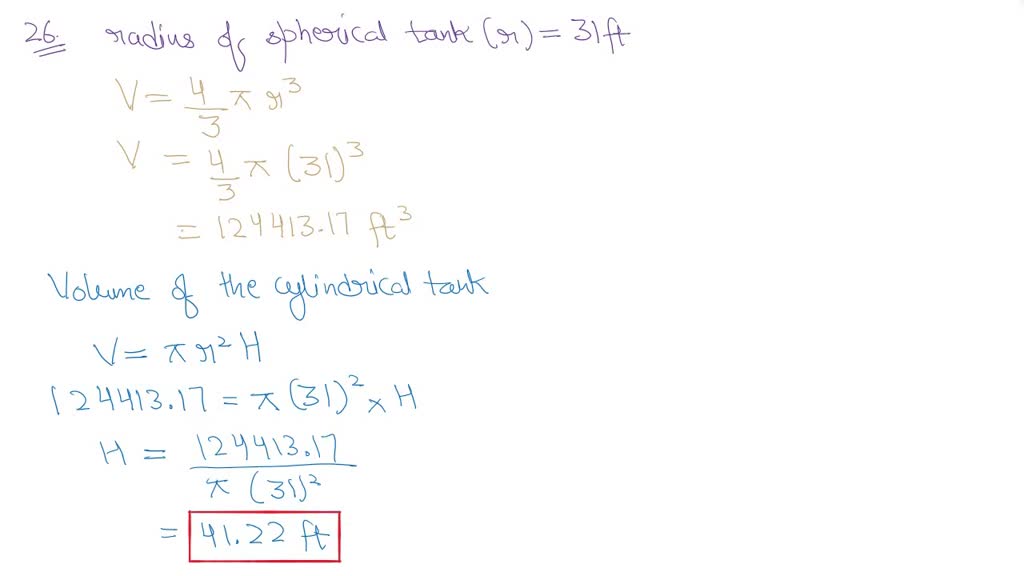 26. radius of spherical tank (r) = 31 ft
V = 4/3 π r³
V = 4/3 π (31)³
= 124413.17 ft³
Volume of the cylindrical tank
V = π r² H
124413.17 = π (31)² × H
H = 124413.17 / π (31)²
= 41.22 ft